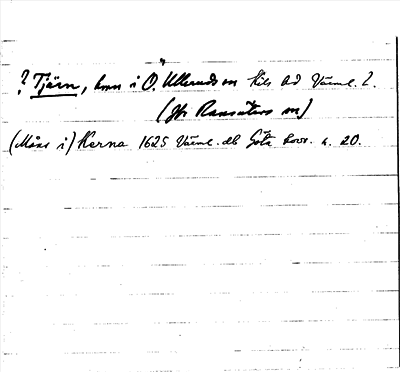 ? Tjärn, hmn i Ö. Ulleruds sn Kils hd Värml. l.
(Jfr Ransäters sn)
(Måns i) Kerna 1625 Värml. db Göta hovr. s. 20.